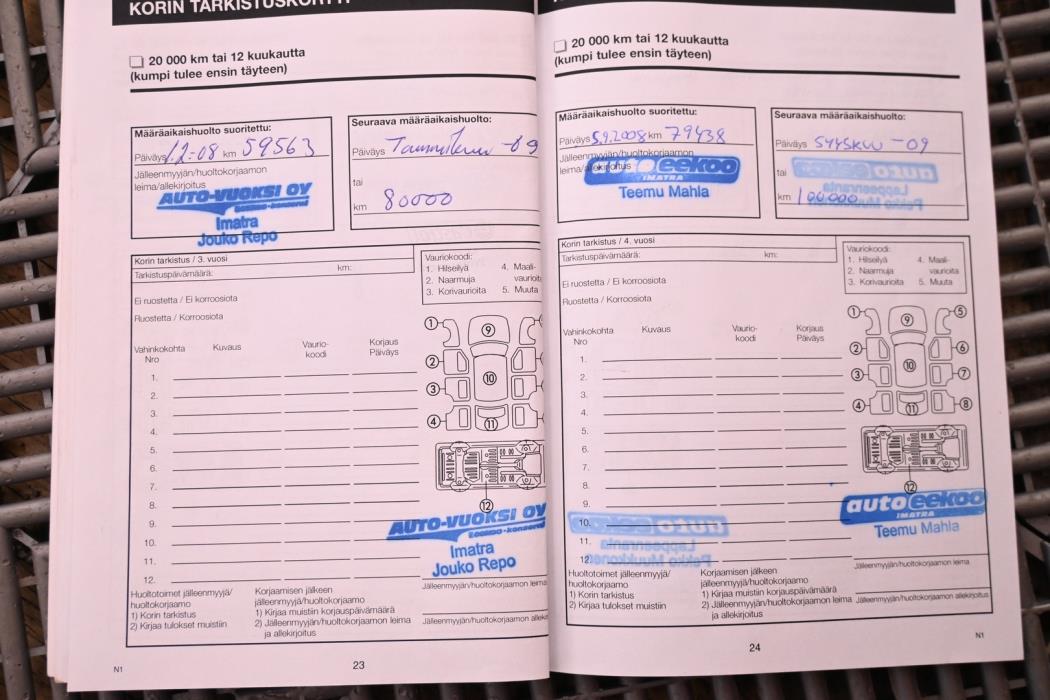 KORIN TARKISTUSKORTTI
20 000 km tai 12 kuukautta
(kumpi tulee ensin täyteen)
Määräaikaishuolto suoritettu:
Päiväys 1/2-08 km 59563
Jälleenmyyjän/huoltokorjaamon
leima/allekirjoitus
AUTO-VUOKSI OY
Imatra
Jouko Repo
Seuraava määräaikaishuolto:
Päiväys Tammikuu -09
tai
km 80000
Korin tarkistus / 3. vuosi
Tarkistuspäivämäärä: km:
Ei ruostetta / Ei korroosiota
Ruostetta / Korroosiota
Vauriokoodi:
1. Hilseilyä 4. Maali-
2. Naarmuja vaurioita
3. Korivaurioita 5. Muuta
Vahinkokohta Kuvaus Vaurio- Korjaus
Nro koodi Päiväys
1.
2.
3.
4.
5.
6.
7.
8.
9.
10.
11.
12.
1
2
3
4
9
10
11
12
AUTO-VUOKSI OY
Imatra
Jouko Repo
Huoltotoimet jälleenmyyjä/ Korjaamisen jälkeen
huoltokorjaamo jälleenmyyjä/huoltokorjaamo
1) Korin tarkistus 1) Kirjaa muistiin korjauspäivämäärä
2) Kirjaa tulokset muistiin 2) Jälleenmyyjän/huoltokorjaamon leima
ja allekirjoitus
Jälleenmyyjän/huoltokorjaamon leima
Jälleenmyyjän/huoltokorjaamon allek
N1
23
20 000 km tai 12 kuukautta
(kumpi tulee ensin täyteen)
Määräaikaishuolto suoritettu:
Päiväys 5.9.2008 km 79438
Jälleenmyyjän/huoltokorjaamon
leima/allekirjoitus
autoeekoo
IMATRA
Teemu Mahla
Seuraava määräaikaishuolto:
Päiväys SYYSKUU -09
tai
km 100000
Korin tarkistus / 4. vuosi
Tarkistuspäivämäärä: km:
Ei ruostetta / Ei korroosiota
Ruostetta / Korroosiota
Vauriokoodi:
1. Hilseilyä 4. Maali-
2. Naarmuja vaurioita
3. Korivaurioita 5. Muuta
Vahinkokohta Kuvaus Vaurio- Korjaus
Nro koodi Päiväys
1.
2.
3.
4.
5.
6.
7.
8.
9.
10.
11.
12.
1
2
3
4
5
6
7
8
9
10
11
12
autoeekoo
IMATRA
Teemu Mahla
Huoltotoimet jälleenmyyjä/ Korjaamisen jälkeen
huoltokorjaamo jälleenmyyjä/huoltokorjaamo
1) Korin tarkistus 1) Kirjaa muistiin korjauspäivämäärä
2) Kirjaa tulokset muistiin 2) Jälleenmyyjän/huoltokorjaamon leima
ja allekirjoitus
Jälleenmyyjän/huoltokorjaamon leima
Jälleenmyyjän/huoltokorjaamon allekirjoitus
24
N1